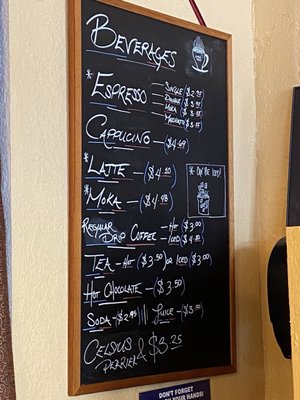 BEVERAGES
* ESPRESSO — SINGLE ($2.95
DOUBLE ($3.95
MOKA ($3.95
MACCHIATO ($3.95
CAPPUCINO — ($4.49
* LATTE — ($4.10
* CAN BE ICED!
* MOKA — ($4.98
REGULAR DRIP COFFEE - HOT ($3.00
- ICED ($4.00
TEA - HOT ($3.50) OR ICED ($3.00
HOT CHOCOLATE - ($3.50
SODA - ($2.95 ||| JUICE - ($3.00
CELSIUS
PERRIER $3.25
DON'T FORGET
YOUR HANDS!